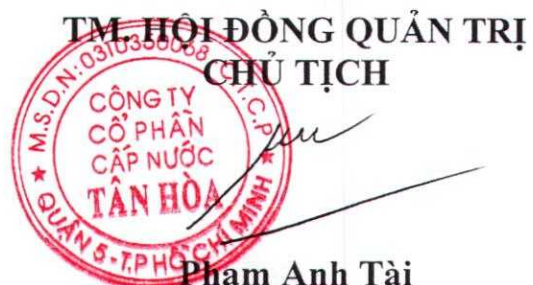 TM. HỘI ĐỒNG QUẢN TRỊ
CHỦ TỊCH
M.S.D.N: 0310350068 C.T.C.P
CÔNG TY
CỔ PHẦN
CẤP NƯỚC
TÂN HÒA
QUẬN 5 - T.P HỒ CHÍ MINH
Phạm Anh Tài